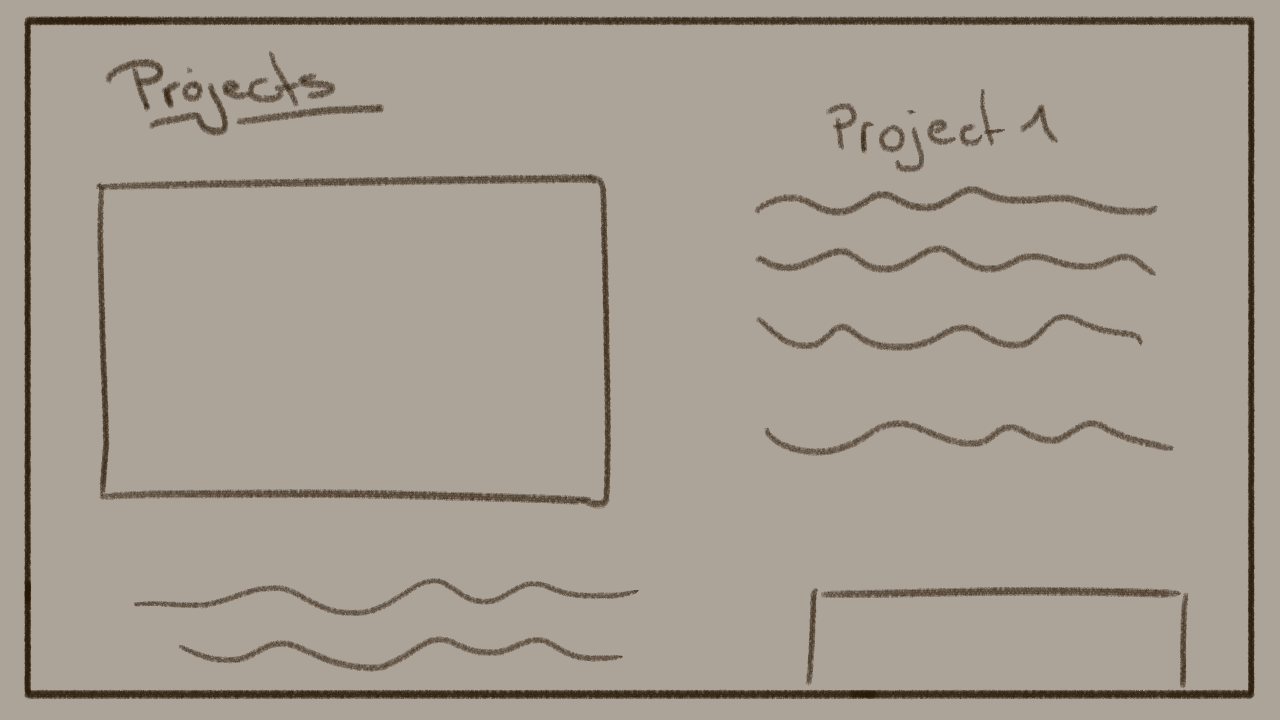 Projects
Project 1